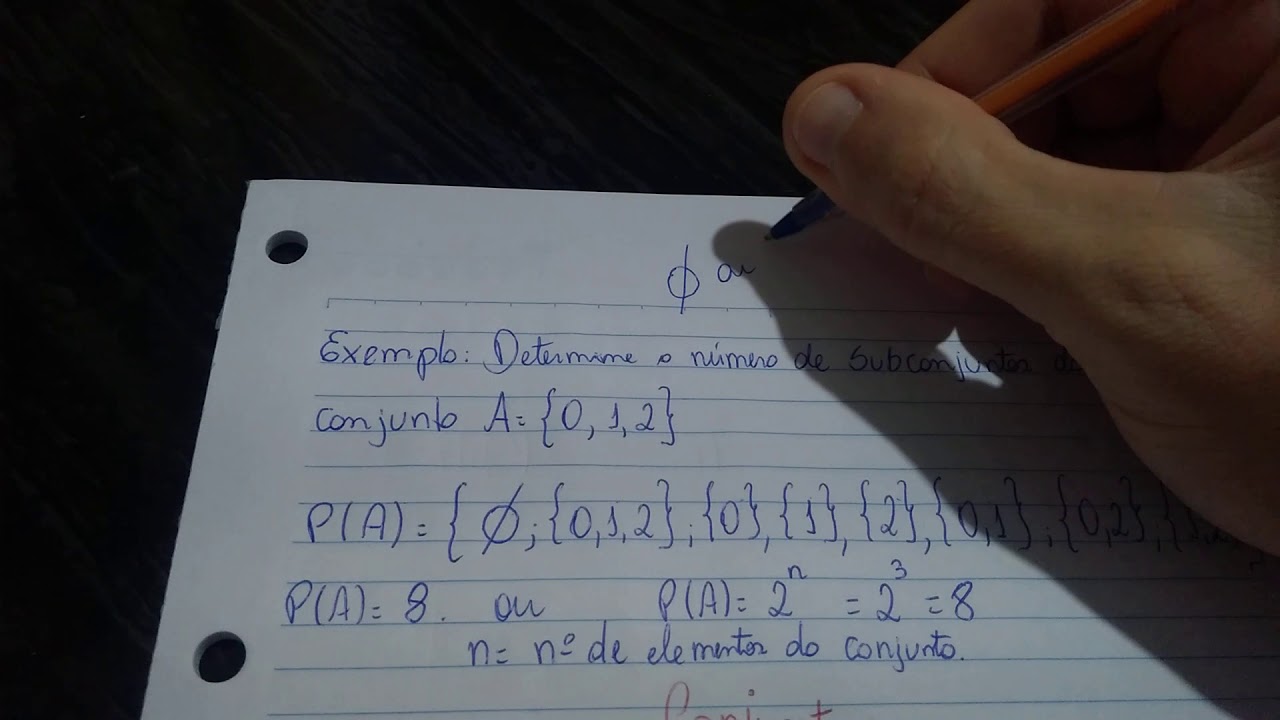 ϕ ou
Exemplo: Determine o número de Subconjuntos do
conjunto A = {0, 1, 2}
P(A) = { ∅; {0,1,2}; {0}, {1}, {2}, {0,1}; {0,2}, {1,2}
P(A) = 8. ou P(A) = 2ⁿ = 2³ = 8
n = nº de elementos do conjunto.